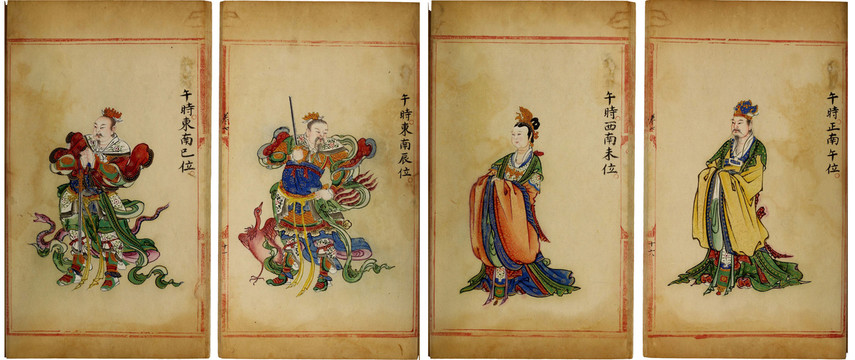 午時東南巳位
午時東南辰位
午時西南未位
午時正南午位